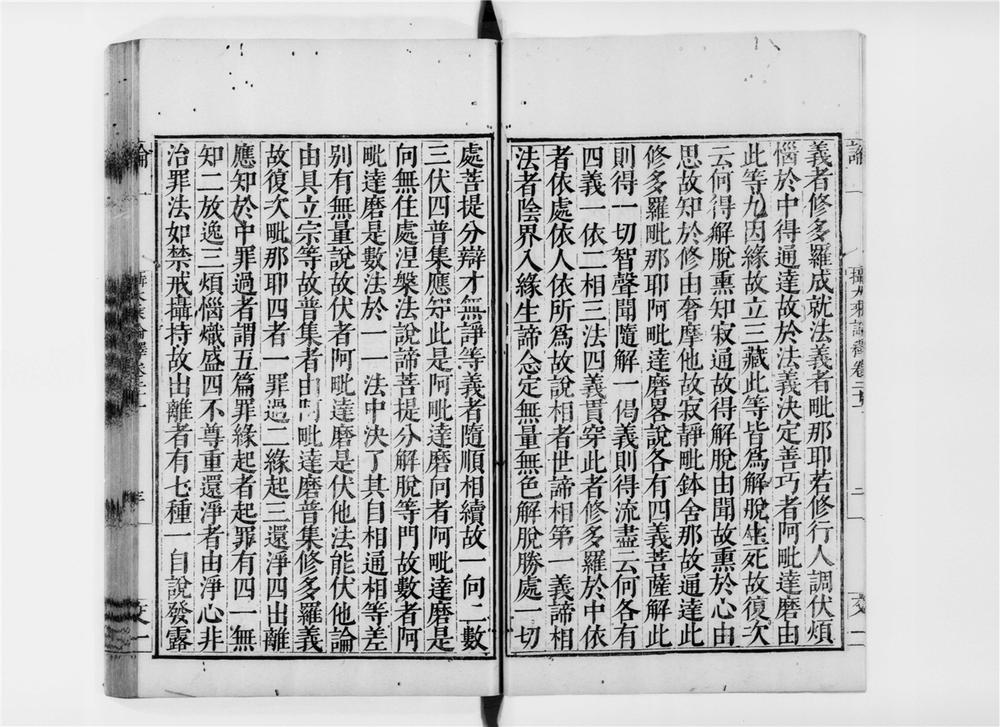 義者修多羅成就法義者毗那耶若修行人調伏煩
惱於中得通達故於法義決定善巧者阿毗達磨由
此等九因緣故立三藏此等皆爲解脫生死故復次
云何得解脫熏知寂通故得解脫由聞故熏於心由
思故知於修由奢摩他故寂靜毗鉢舍那故通達此
修多羅毗那耶阿毗達磨畧說各有四義菩薩解此
則得一切智聲聞隨解一偈義則得流盡云何各有
四義一依二相三法四義貫穿此者修多羅於中依
者依處依人依所爲故說相者世諦相第一義諦相
法者陰界入緣生諦念定無量無色解脫勝處一切
處菩提分辯才無諍等義者隨順相續故一向二數
三伏四普集應知此是阿毗達磨向者阿毗達磨是
向無住處涅槃法說諦菩提分解脫等門故數者阿
毗達磨是數法於一一法中決了其自相通相等差
別有無量說故伏者阿毗達磨是伏他法能伏他論
由具立宗等故普集者由阿毗達磨普集修多羅義
故復次毗那耶四者一罪過二緣起三還淨四出離
應知於中罪過者謂五篇罪緣起者起罪有四一無
知二放逸三煩惱熾盛四不尊重還淨者由淨心非
治罪法如禁戒攝持故出離者有七種一自說發露